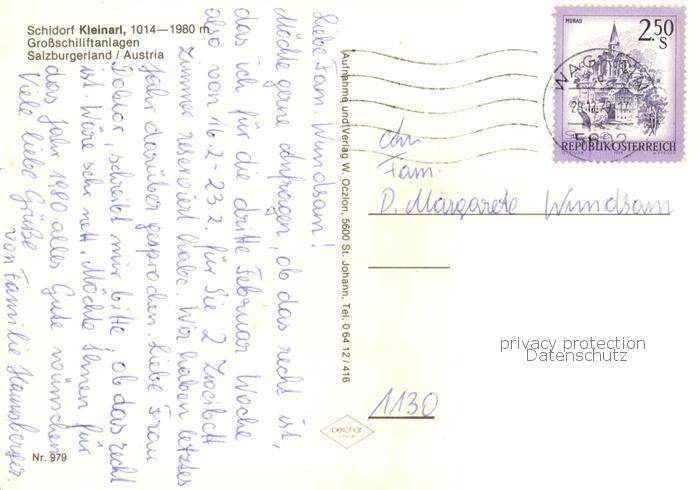 Schidorf Kleinarl, 1014—1980 m
Großschiliftanlagen
Salzburgerland / Austria
Liebe Fam. Wundsam!
Möchte gerne Anfragen, ob das recht ist,
das ich für die dritte Februar Woche
also von 16.2-23.2. für Sie 2 Zweibett
Zimmer reserviert habe. Wir haben letztes
Jahr darüber gesprochen. Liebe Frau
Doktor, schreibt mir bitte, ob das recht
ist. Wäre sehr nett. Möchte Ihnen für
das Jahr 1980 alles Gute wünschen
Viele liebe Grüße
von Familie
Nr. 979
Aufnahme und Verlag W. Oczlon, 5600 St. Johann, Tel. 0 64 12 / 416
MURAU
2.50
S
REPUBLIK ÖSTERREICH
An
Fam.
D. Margarete Wundsam
privacy protection
Datenschutz
1130